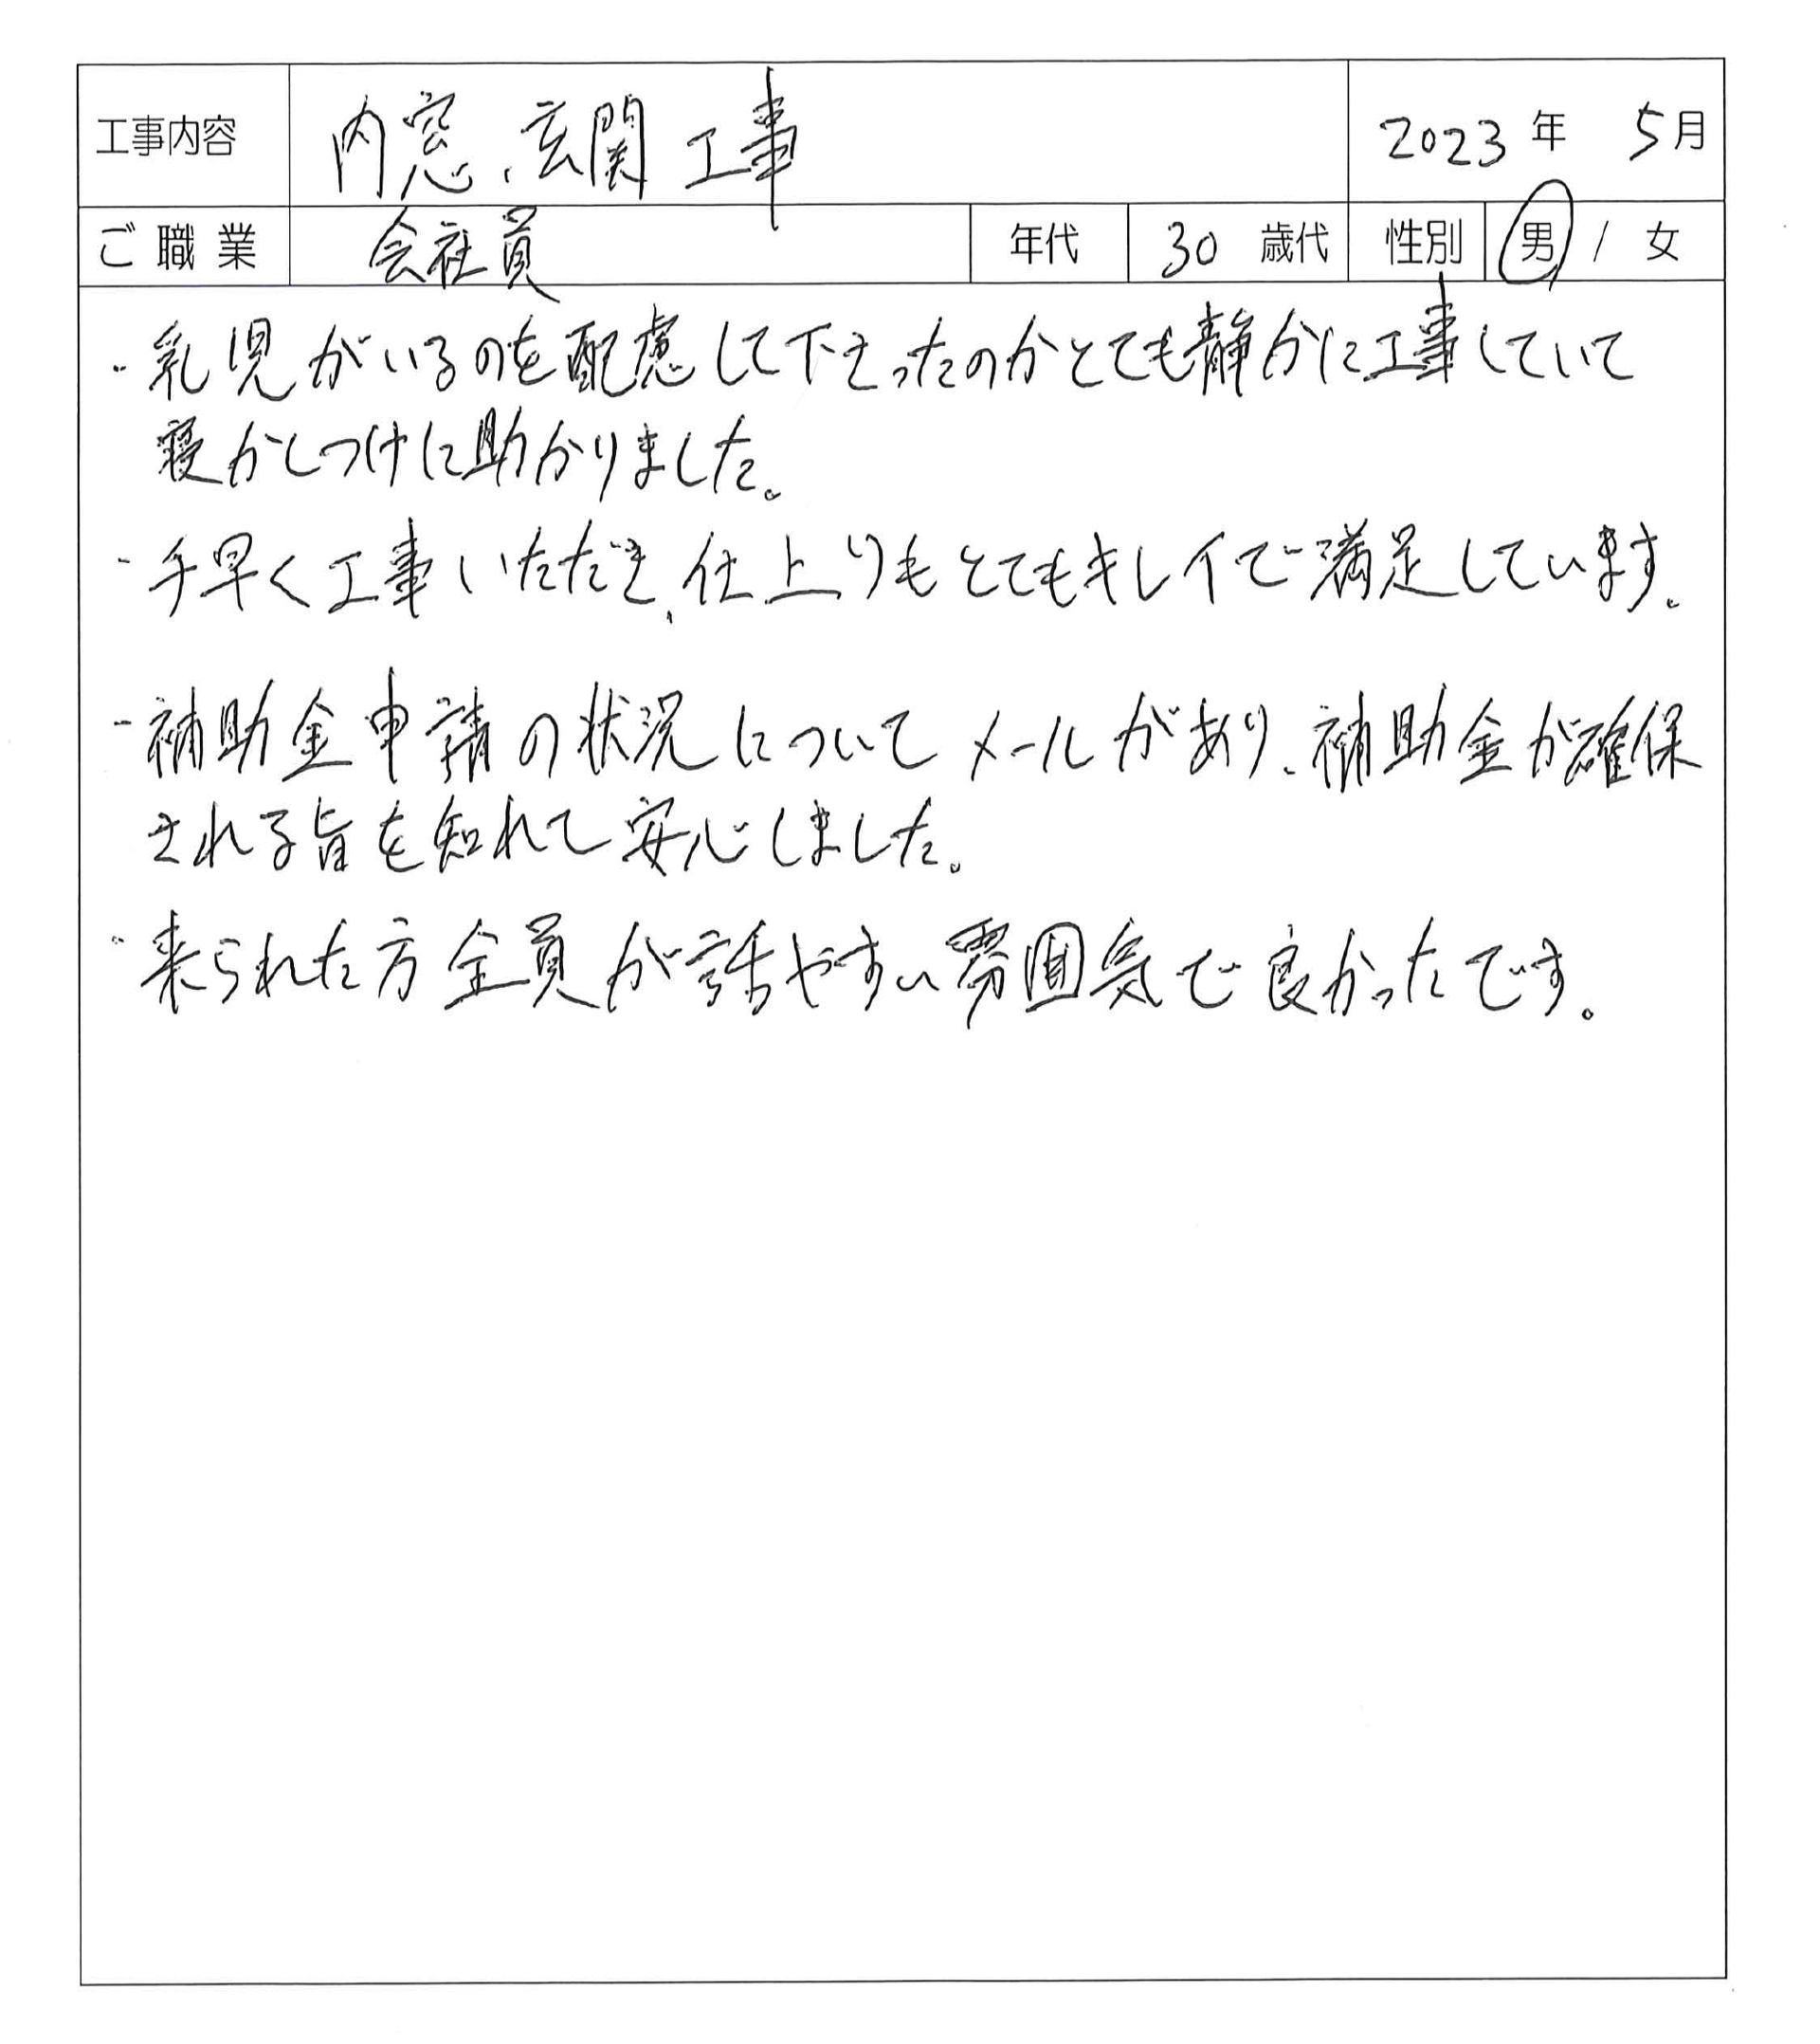 工事内容 内窓、玄関 工事 2023年 5月
ご職業 会社員 年代 30 歳代 性別 男 / 女
・乳児がいるのを配慮して下さったのかとても静かに工事していて
寝かしつけに助かりました。
・手早く工事いただき、仕上りもとてもキレイで満足しています。
・補助金申請の状況についてメールがあり、補助金が確保
される旨を知れて安心しました。
・来られた方全員が話やすい雰囲気で良かったです。